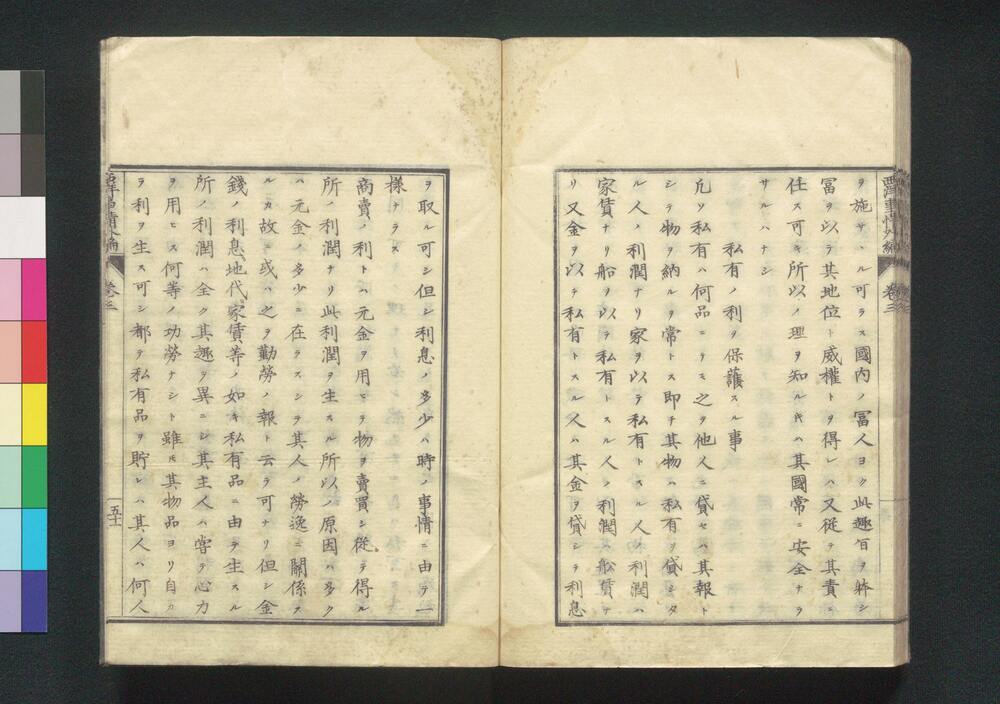 西洋事情外編 卷三
ヲ施サヾル可ラズ國内ノ冨人ヨク此趣旨ヲ躰シ
冨ヲ以テ其地位ト威權トヲ得レハ又從テ其責ニ
任ス可キ所以ノ理ヲ知ル𪜈ハ其國常ニ安全ナラ
サルハナシ
私有ノ利ヲ保護スル事
凡ソ私有ハ何品ニテモ之ヲ他人ニ貸セハ其報ト
シテ物ヲ納ルヲ常トス即チ其物ハ私有ヲ貸シタ
ル人ノ利潤ナリ家ヲ以テ私有トスル人ノ利潤ハ
家賃ナリ船ヲ以テ私有トスル人ノ利潤ハ船賃ナ
リ又金ヲ以テ私有トスル人ハ其金ヲ貸シテ利息
ヲ取ル可シ但シ利息ノ多少ハ時ノ事情ニ由テ一
樣ナラス
商賣ノ利トハ元金ヲ用ヒテ物ヲ賣買シ從テ得ル
所ノ利潤ナリ此利潤ヲ生スル所以ノ原因ハ多ク
ハ元金ノ多少ニ在ラスシテ其人ノ勞逸ニ關係ス
ルカ故ニ或ハ之ヲ勤勞ノ報ト云テ可ナリ但シ金
錢ノ利息地代家賃等ノ如キ私有品ニ由テ生スル
所ノ利潤ハ全ク其趣ヲ異ニシ其主人ハ甞テ心力
ヲ用ヒス何等ノ功勞ナシト雖𪜈其物品ヨリ自カ
ラ利ヲ生ス可シ都テ私有品ヲ貯レハ其人ハ何人
西洋事情外編 卷三 五十